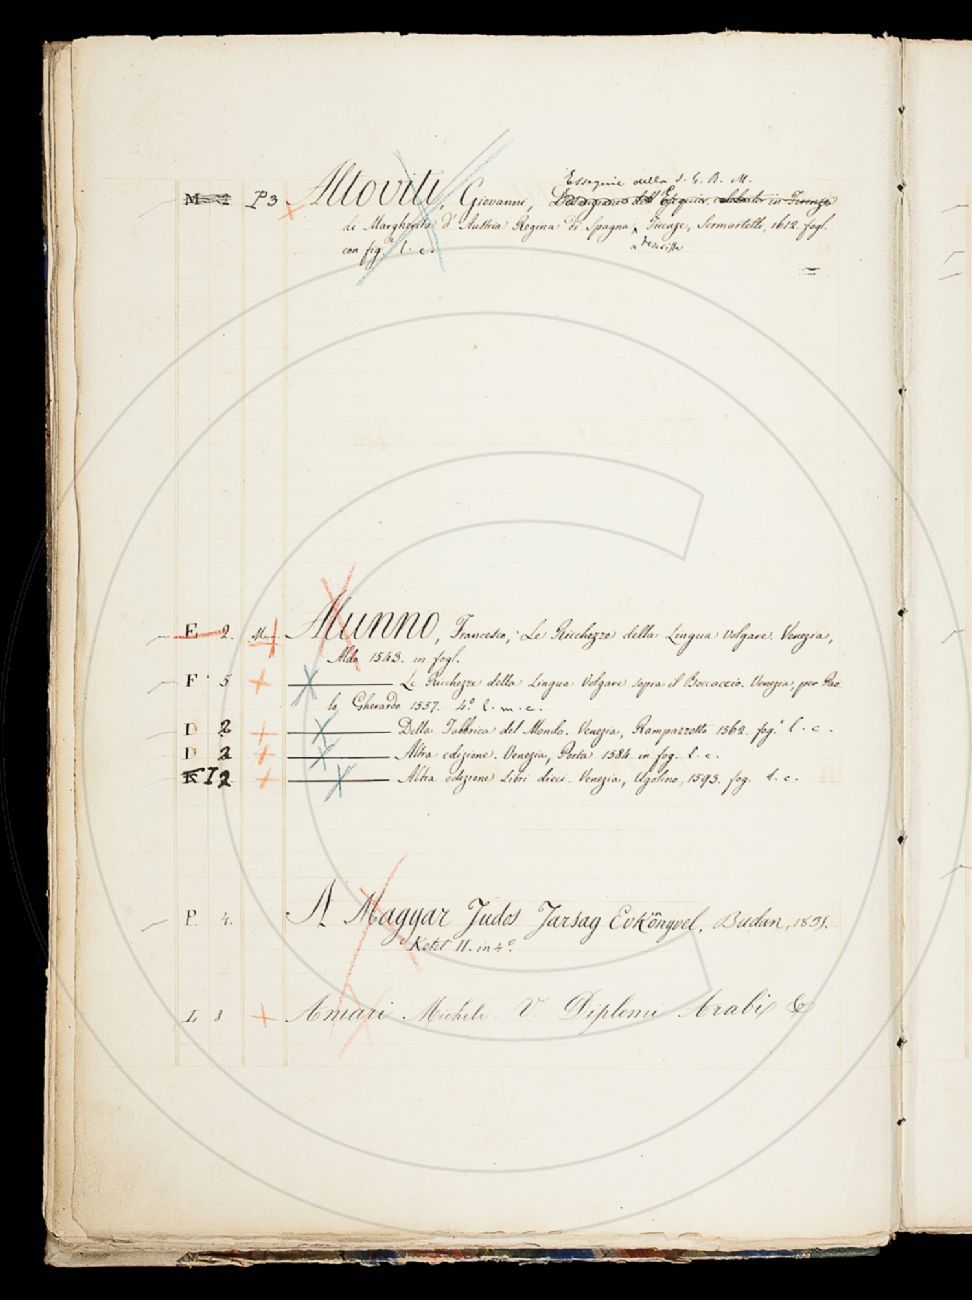 Essequie della S. C. R. M.
P3 Altoviti, Giovanni, celebrate in Firenze
di Margherita d' Austria Regina di Spagna, Firenze, Sermartelli, 1612. fogl.
descritte
con fig. l. c.
E 2. Alunno, Francesco, Le Ricchezze della Lingua Volgare. Venezia,
Aldo 1543. in fogl.
F 5 Le Ricchezze della Lingua Volgare sopra il Boccaccio. Venezia, per Pao-
lo Gherardo 1557. 4.° l. m. c.
D 2 Della Fabbrica del Mondo. Venezia, Rampazzetto 1562. fog. l. c.
D 2 Altra edizione. Venezia, Porta 1584. in fog. l. c.
I 2 Altra edizione Libri dieci. Venezia, Ugolino, 1593. fog. l. c.
P. 4. A Magyar Tudos Tarsag Evkönyvel, Budan, 1835.
Kotet II. in 4°
L 8 Amari Michele V. Diplomi Arabi &